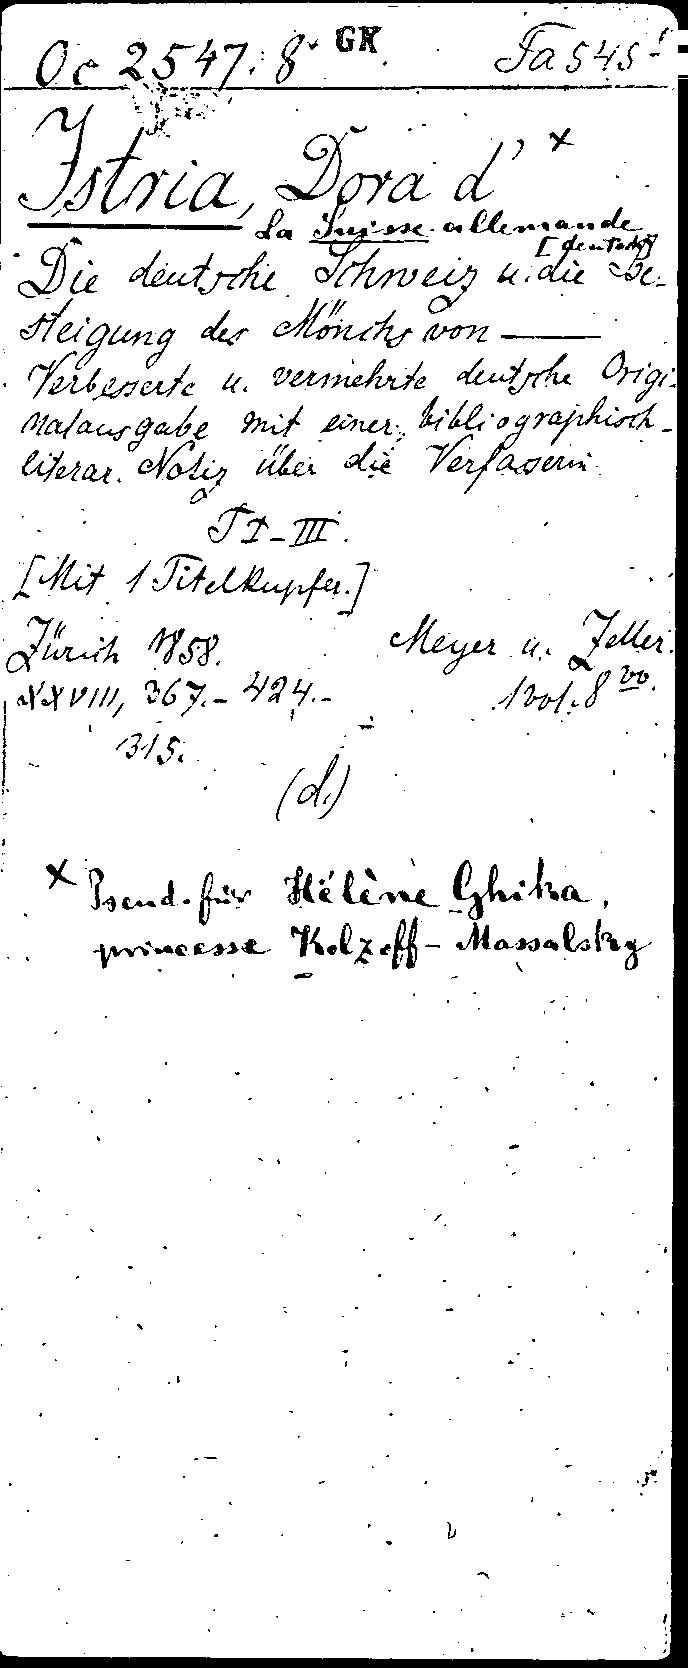 Oc 2547. 8° GK Fa 545 f
Istria, Dora d' x
La Suisse allemande
[deutsch]
Die deutsche Schweiz u. die Be-
steigung des Mönchs von ———
Verbesserte u. vermehrte deutsche Origi-
nalausgabe mit einer bibliographisch-
literar. Notiz über die Verfasserin
T I-III.
[Mit 1 Titelkupfer.]
Zürich 1858. Meyer u. Zeller.
XXVIII, 367.- 424.- 1 vol. 8 vo.
315.
(d.)
x Pseud. für Hélène Ghika,
princesse Kolzoff-Massalsky